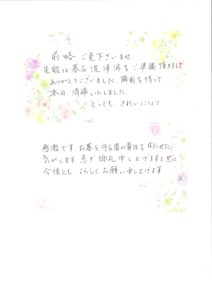 前略 ご免下さいませ
先般は墓石洗浄液をご準備頂きまして
ありがとうございました 開雨を待って
本日、清掃いたしました
とっても きれいになり
感激です お墓を守る者の責任を果たせた
気がします 急ぎ御礼申し上げますと共に
今後とも よろしくお願い申し上げます